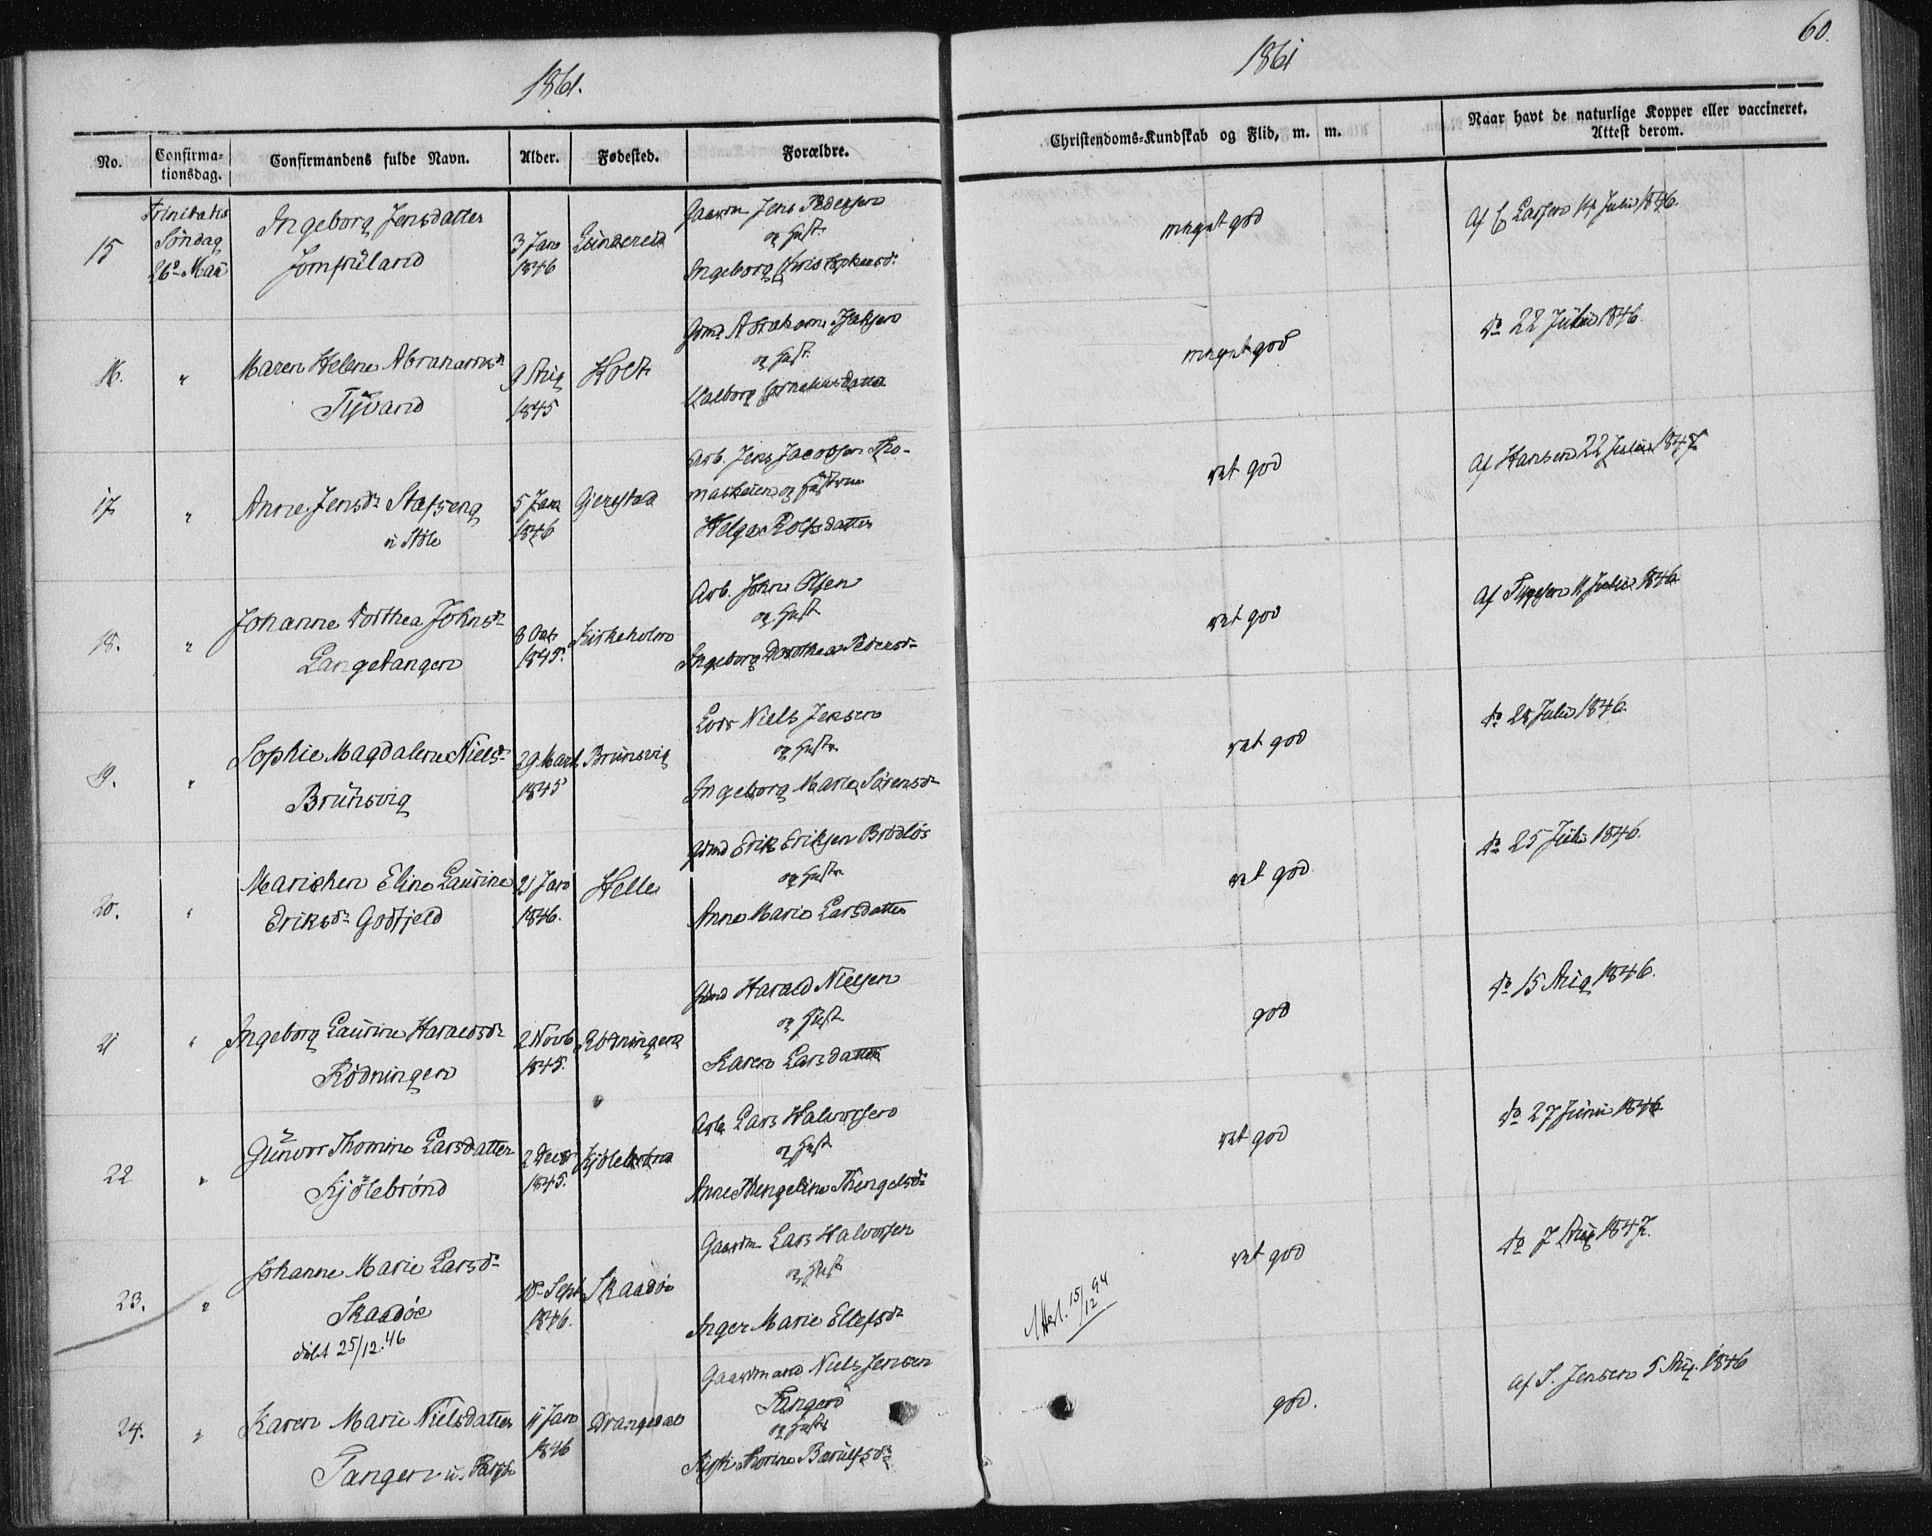 1861.
1861
60.
No.
Confirma-
tionsdag.
Confirmandens fulde Navn.
Alder.
Fødested.
Forældre.
Christendoms-Kundskab og Flid, m. m.
Naar havt de naturlige Kopper eller vaccineret.
Attest derom.
15
Trinitatis
Søndag
26º Mai
Ingeborg Jensdatter
Jomfruland
3 Jan
1846
Gaardm Jens Pedersen
og Hust
Ingeborg Kristophersd.
meget god
Af Larsen Juli 1846.
16.
"
Maren Helene Abrahamsd
9 Aug
1845
Holt
Gmd Abraham
og Hust.
Valborg Corneliusdatter
meget god
do 22 Juli 1846.
17
"
Anne Jensd Stafseng
v Støle
5 Jan
1846
Gjerestad
Arb. Jens Jacobsen Tho-
og Hustru
Helge Rolfsdatter
ret god
Af Hansen 22 Juli 1847.
18.
"
Johanne Dorthea Johnsd
Langetangen
8 Oct
1845.
Kirkeholm
Arb. John Olsen
og Hust
Ingeborg Dorothea Pedersd
ret god
Af Juli 1846
19.
"
Sophie Magdalene Nielsd
Brunsvig
29 Marts
1845
Brunsvig
Lods Niels Jensen
og Hustr
Ingeborg Marie Sørensd
ret god
do 28 Juli 1846.
20.
"
Marichen Eline Laurine
Eriksd Godfjeld
21 Jan
1846.
Helle
Gmd Erik Eriksen Brødløs
og Hustr
Anne Marie Larsdatter
ret god
do 25 Juli 1846.
21
"
Ingeborg Laurine Haraldsd
Rødningen
2 Novb
1845.
Rødningen
Gmd Harald Nielsen
og Hust
Karen Larsdatter
god
do 15 Aug 1846.
22
"
Gunvor Thomine Larsdatter
Kjølebrønd
2 Decbr
1845.
Kjølebrønd
Arb Lars Halvorsen
og Hust
Anne Thengeline Thengelsd
ret god
do 27 Juni 1846
23.
"
Johanne Marie Larsd
Skaadøe
døbt 25/12.46
18 Sept
1846.
Skaadøe
Gaardm Lars Halvorsen
og Hust
Inger Marie Ellefsd
Attest. 15/12 94
ret god
do 7 Aug 1847.
24.
"
Karen Marie Nielsdatter
Tangen
11 Jan
1846
Drangedal
Gaardmand Niels Jensen
Tangen
og Hustr
god.
Af S. Jensen 5 Aug. 1846